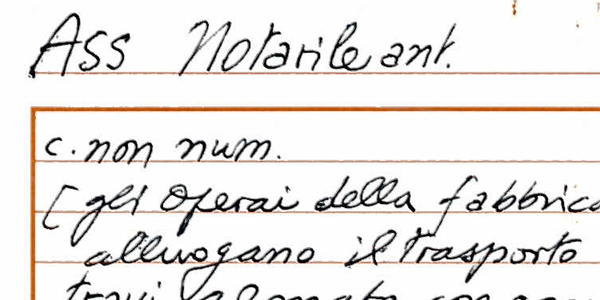 Ass Notarile ant.
c. non num.
[gli operai della fabbrica
alluogano il trasporto
travi